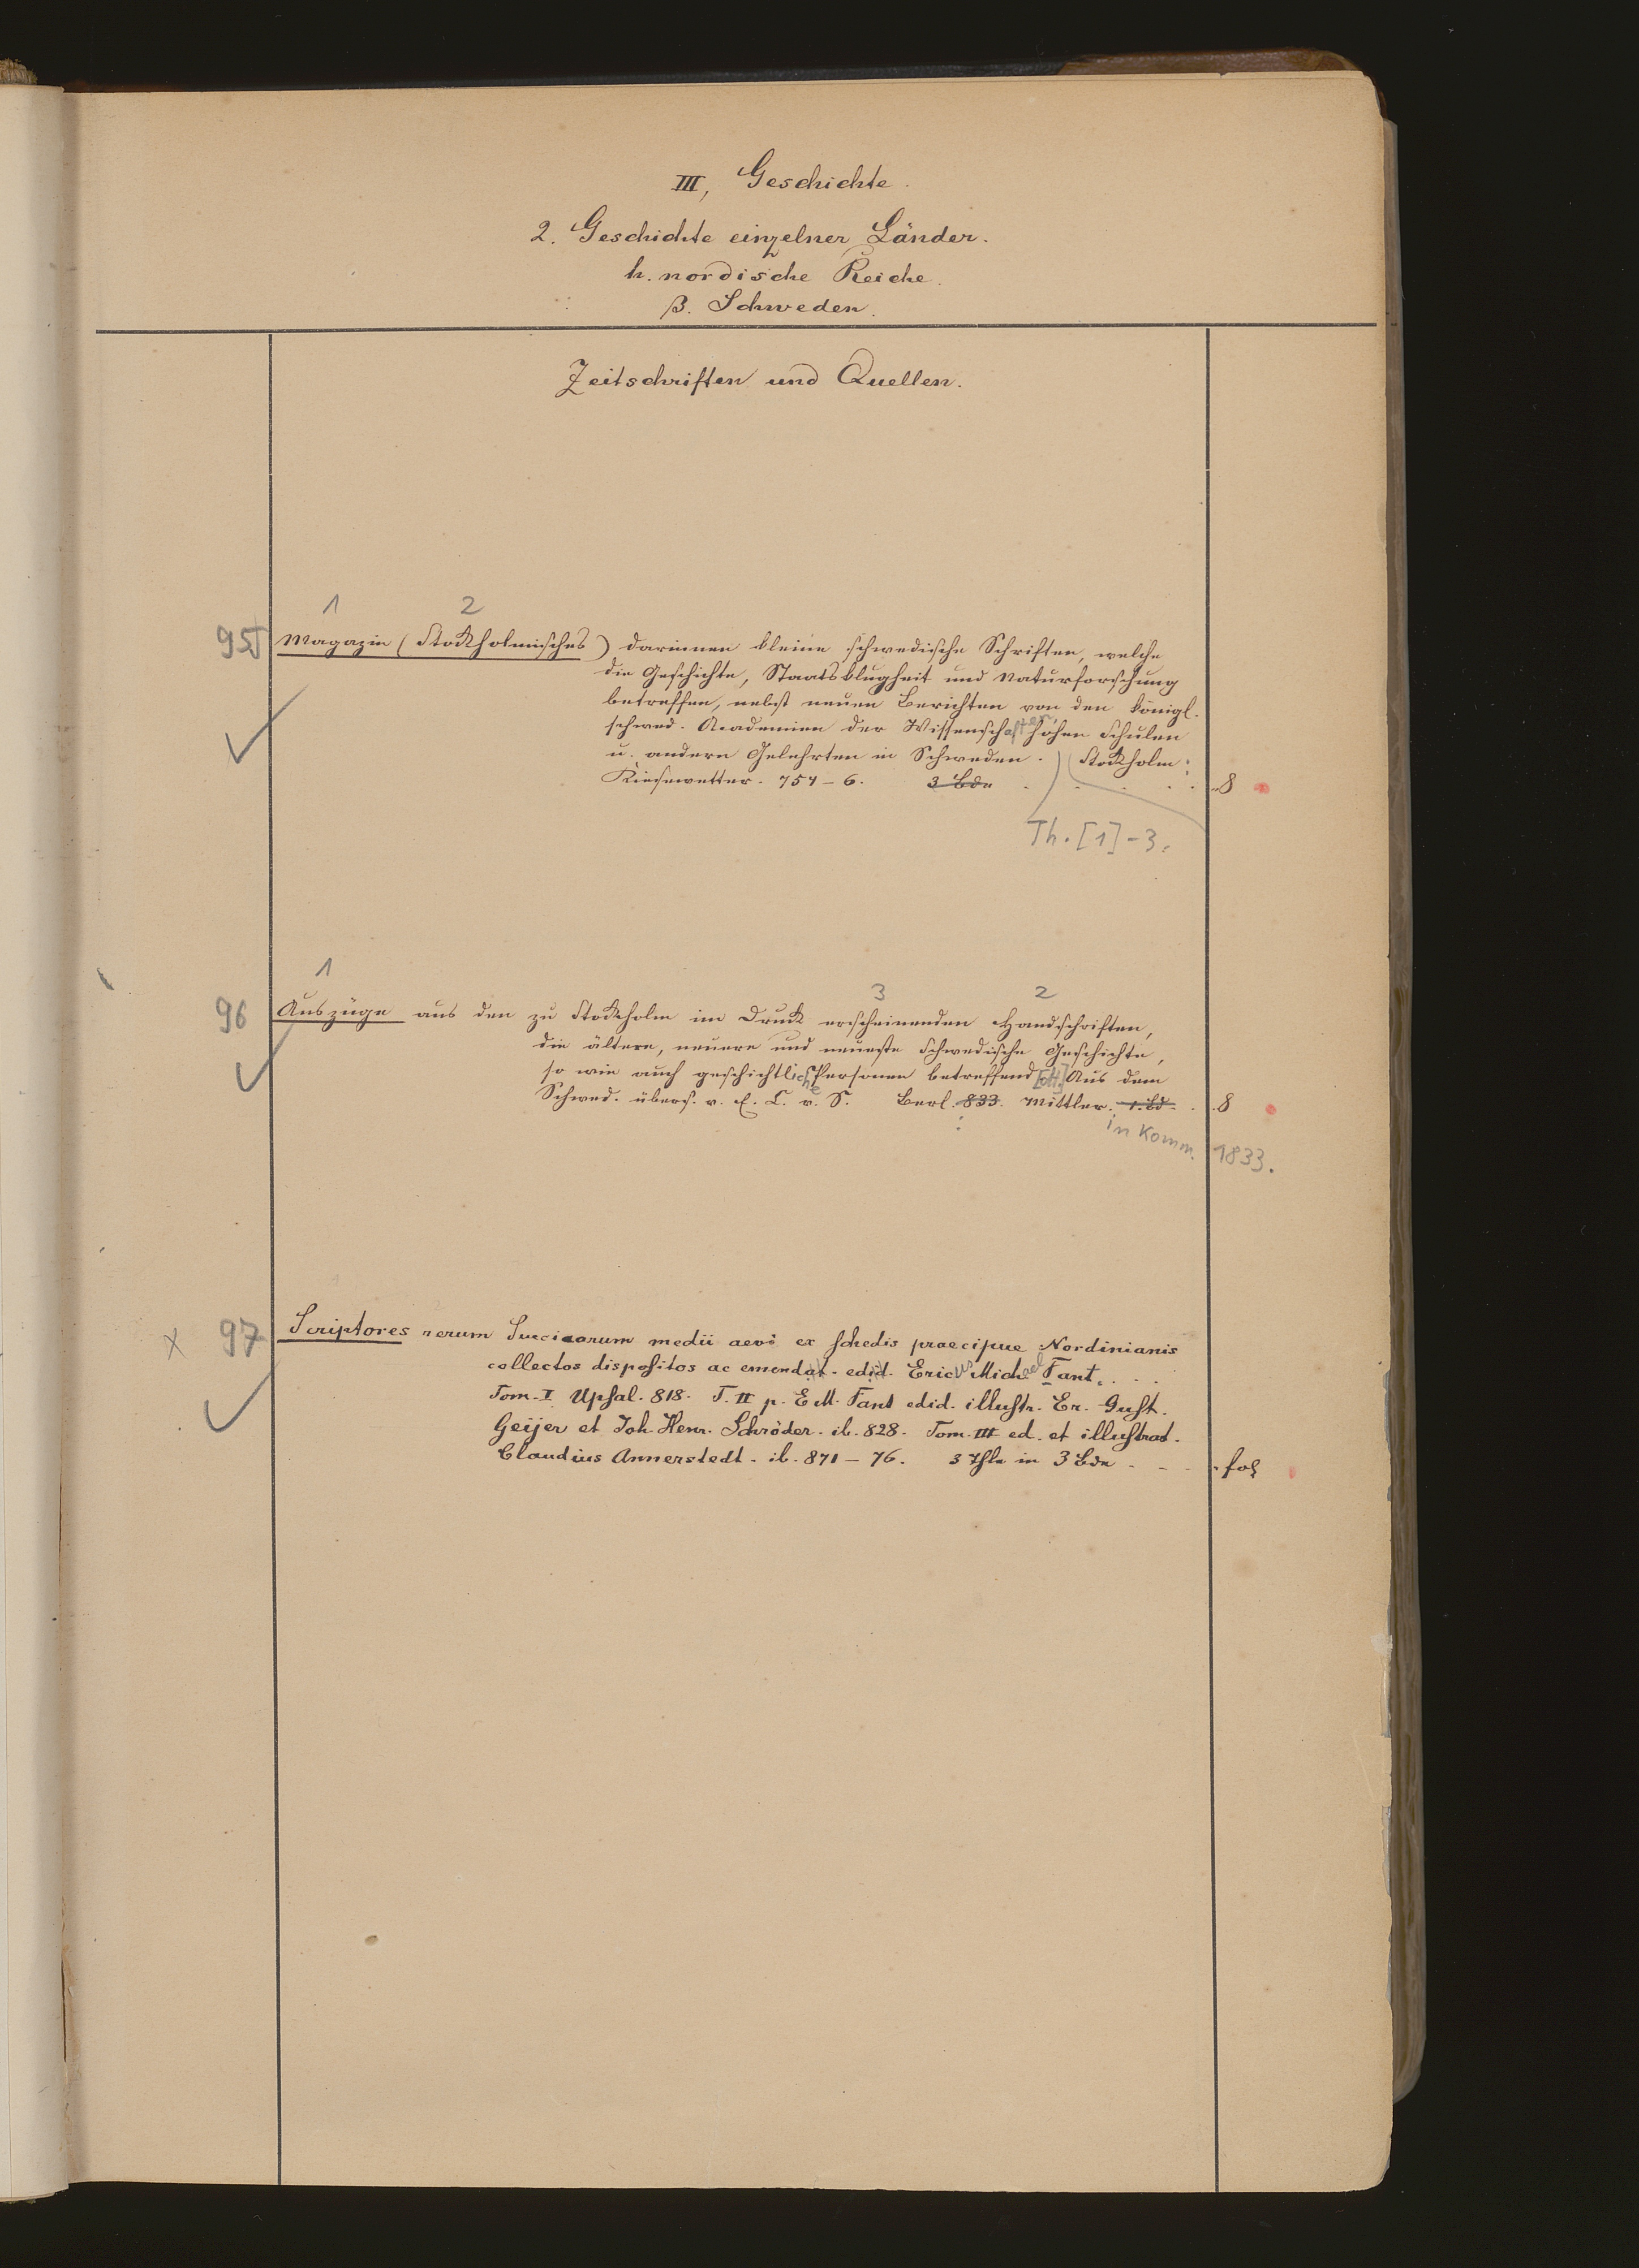 III, Geschichte.
2. Geschichte einzelner Länder.
h. nordische Reiche.
β. Schweden.
Zeitschriften und Quellen.
1 2
95 Magazin (Stockholmisches) darinnen kleine schwedische Schriften, welche
die Geschichte, Staatsklugheit und Naturforschung
betreffen, nebst neuen Berichten von den königl.
schwed. Academien der Wissenschaften, hohen Schulen
u. andern Gelehrten in Schweden. Stockholm:
Kiesewetter. 754–6. 3 Bde . . . . . 8
Th. [1]-3.
1 3 2
96 Auszüge aus den zu Stockholm im Druck erscheinenden Handschriften,
die ältere, neuere und neueste schwedische Geschichte,
so wie auch geschichtliche Personen betreffend Aus dem
Schwed. übers. v. E. C. v. S. Berl. 833. Mittler. 1. Bd. . 8
in Komm. 1833.
x 97 Scriptores rerum Suecicarum medii aevi ex schedis praecipue Nordinianis
collectos dispositos ac emendat. edid. Ericus Michael Fant. . . .
Tom. I Upsal. 818. T. II p. E M. Fant edid. illustr. Er. Gust.
Geijer et Joh. Henr. Schröder. ib. 828. Tom. III ed. et illustrat.
Claudius Annerstedt. ib. 871–76. 3 Thle in 3 Bde . . . . fol